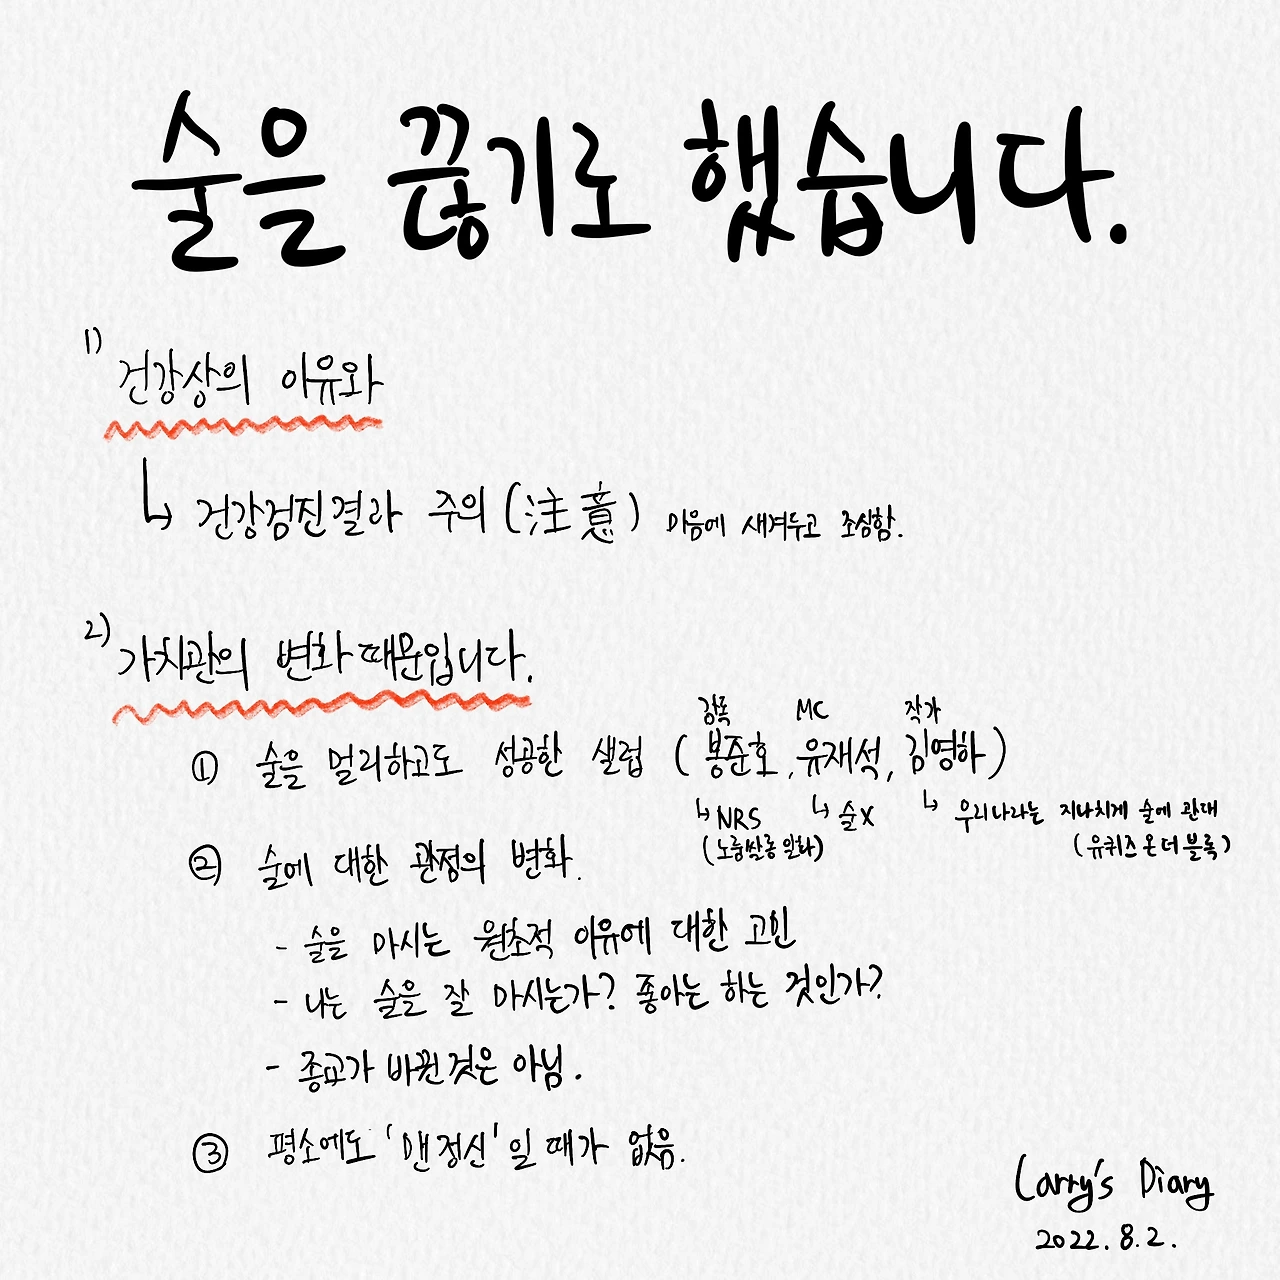 술을 끊기로 했습니다.
1) 건강상의 이유와
↳ 건강검진결과 주의 (注意) 마음에 새겨두고 조심함.
2) 가치관의 변화 때문입니다.
감독 MC 작가
① 술을 멀리하고도 성공한 샐럽 (봉준호, 유재석, 김영하)
↳ NRS ↳ 술X ↳ 우리나라는 지나치게 술에 관대
(노룸쌀롱 일화) (유퀴즈 온 더 블록)
② 술에 대한 관점의 변화.
- 술을 마시는 원초적 이유에 대한 고민
- 나는 술을 잘 마시는가? 좋아는 하는 것인가?
- 종교가 바뀐것은 아님.
③ 평소에도 '맨정신'일 때가 없음.
Larry's Diary
2022. 8. 2.